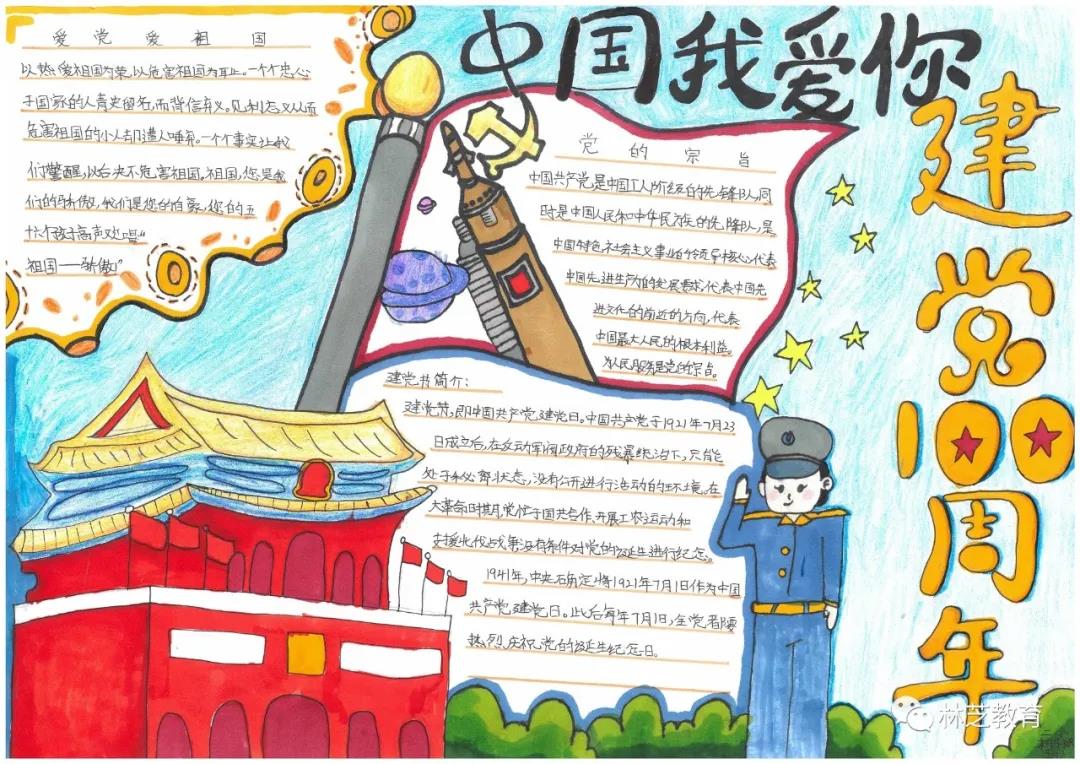 中国我爱你
建党100周年
爱党爱祖国
以热爱祖国为荣,以危害祖国为耻。一个个忠心
于国家的人青史留名,而背信弃义。见利忘义从而
危害祖国的小人却遭人唾弃。一个个事实让我
们警醒,以后决不危害祖国,祖国,您是我
们的骄傲,我们是您的自豪,您的五
十六个孩子高声欢唱“
祖国——骄傲”
党的宗旨
中国共产党是中国工人阶级的先锋队,同
时是中国人民和中华民族的先锋队,是
中国特色社会主义事业的领导核心,代表
中国先进生产力的发展要求,代表中国先
进文化的前进的方向,代表
中国最大人民的根本利益。
为人民服务是党的宗旨。
建党节简介:
建党节,即中国共产党建党日。中国共产党于1921年7月23
日成立后,在反动军阀政府的残暴统治下,只能
处于秘密状态,没有公开进行活动的环境。在
大革命时期,党忙于国共合作、开展工农运动和
支援北伐战争没有条件对党的诞生进行纪念。
1941年,中央确定将1921年7月1日作为中国
共产党建党日。此后每年7月1日,全党都要
热烈庆祝党的诞生纪念日。
林芝教育